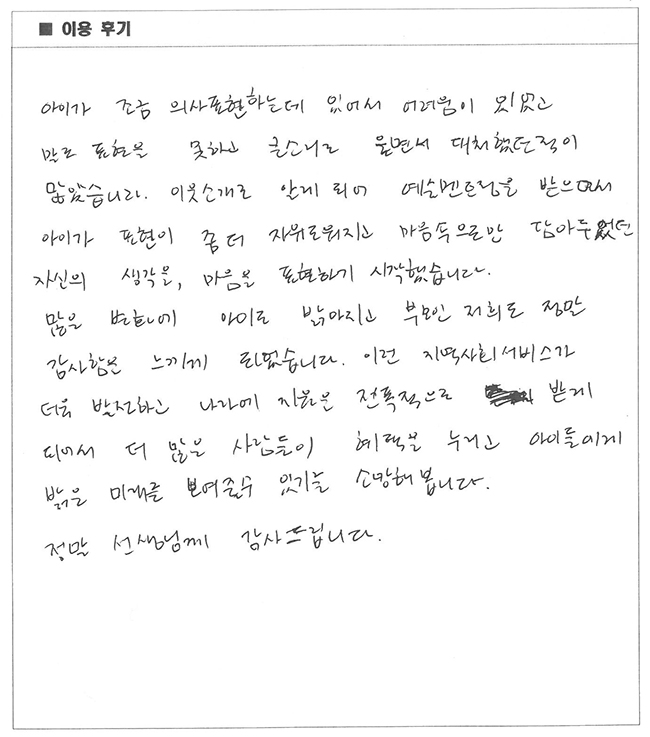 ■ 이용 후기
아이가 조금 의사표현하는데 있어서 어려움이 있었고
말로 표현을 못하고 큰소리로 울면서 대처했던적이
많았습니다. 이웃소개로 알게 되어 예술멘토링을 받으면서
아이가 표현이 좀 더 자유로워지고 마음속으로만 담아두었던
자신의 생각을, 마음을 표현하기 시작했습니다.
많은 변화에 아이도 밝아지고 부모인 저희도 정말
감사함을 느끼게 되었습니다. 이런 지역사회서비스가
더욱 발전하고 나라에 지원을 전폭적으로 받게
되어서 더 많은 사람들이 혜택을 누리고 아이들에게
밝은 미래를 보여줄수 있기를 소망해 봅니다.
정말 선생님께 감사드립니다.